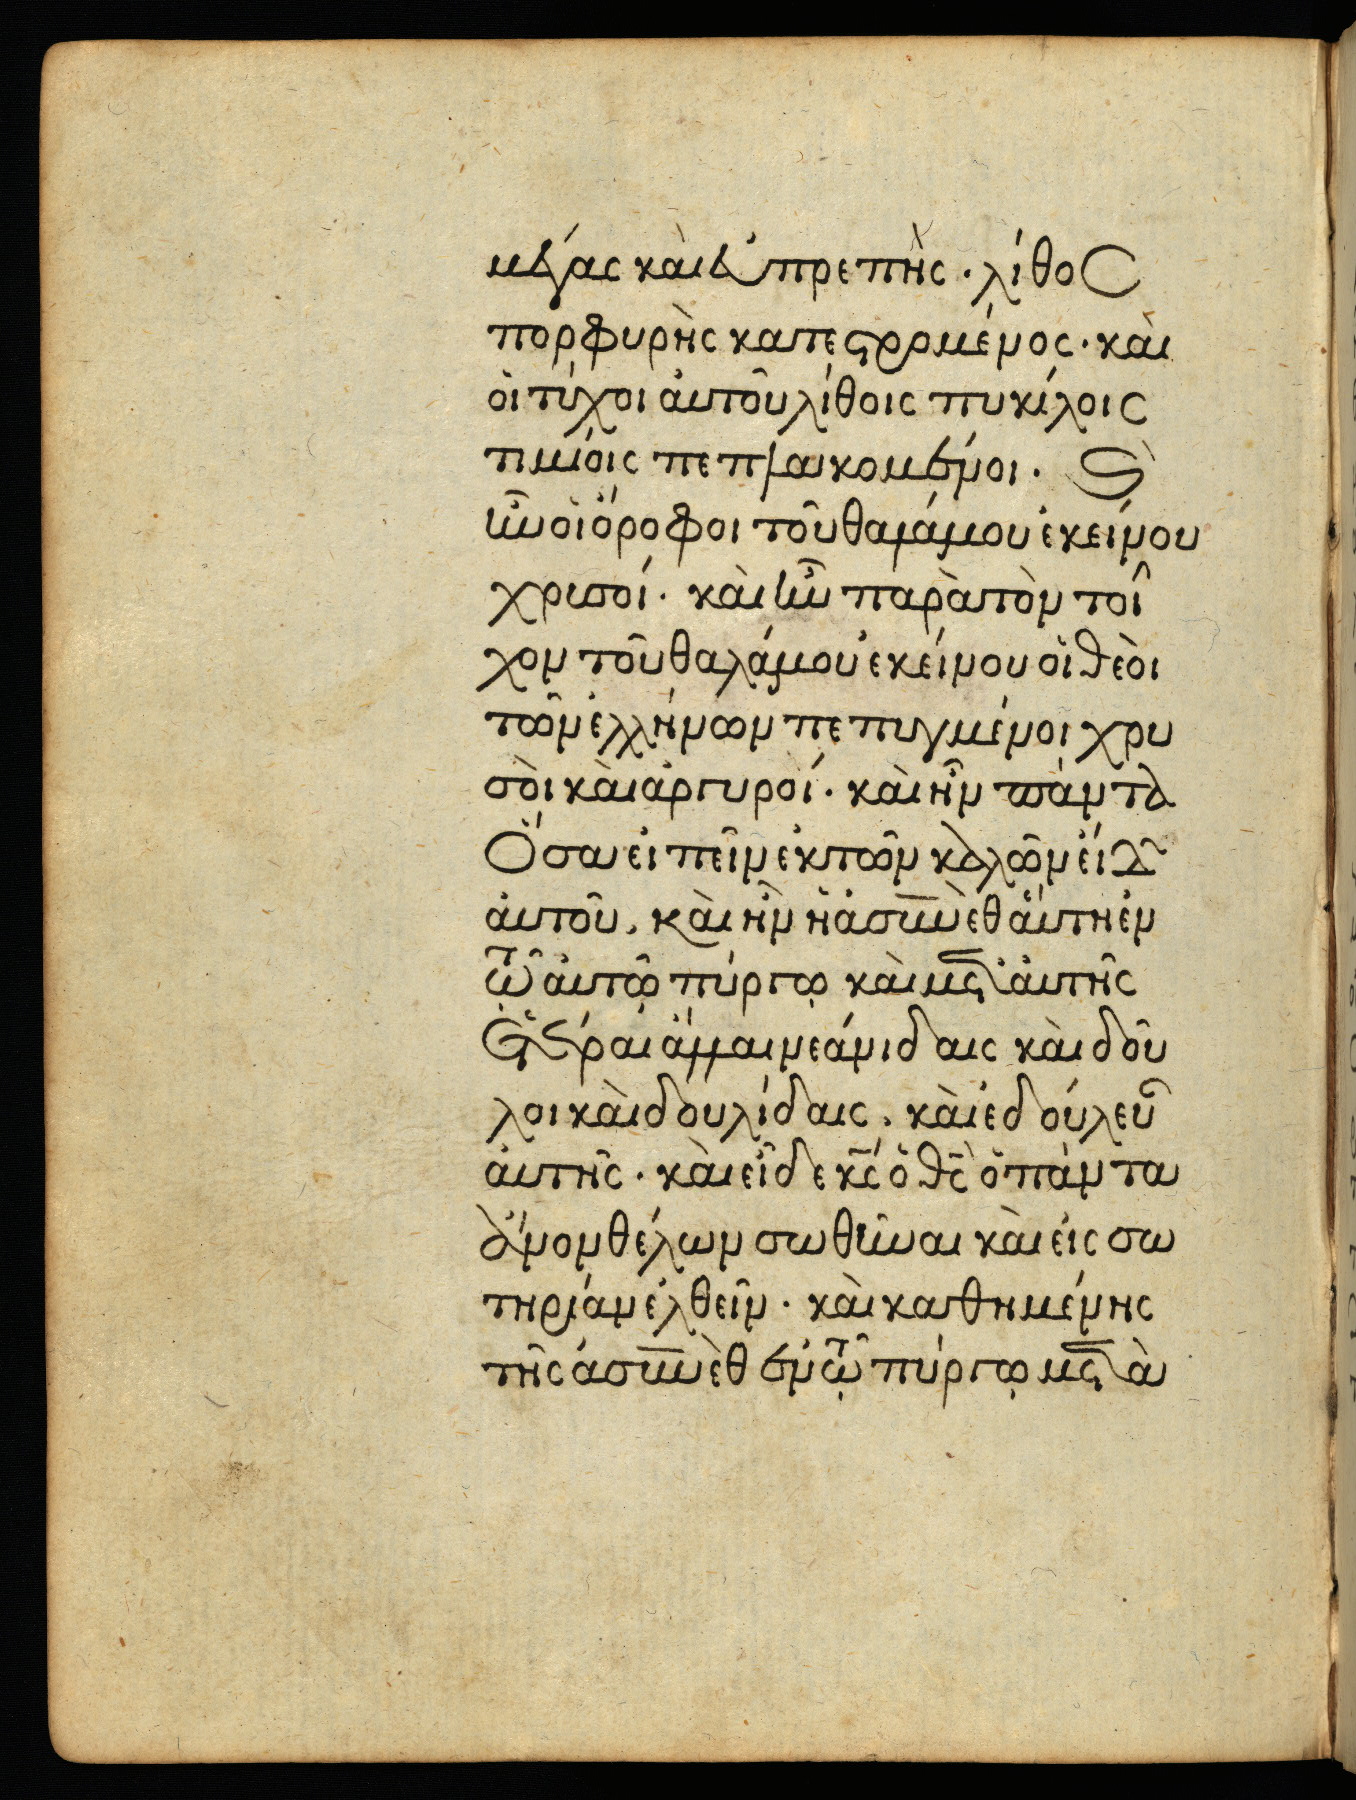 μέγας καὶ ἐυπρεπὴς · λίθος
πορφυρὴς κατεστρομένος · καὶ
ὁι τύχοι ἀυτοῦ λίθοις πυκίλοις
τιμίοις πεπλακομένοι · καὶ
ἦν οἱ ὄροφοι τοῦ θαλάμου ἐκείνου
χρισοί · καὶ ἦν παρὰ τὸν τοῖ
χον τοῦ θαλάμου ἐκείνου οἱ θεὸι
τῶν ἑλλήνων πεπυγμένοι χρυ
σὸι καὶ ἀργυροί · καὶ ἦν πάντα
Ὅσα ειπεῖν ἐκ τῶν καλῶν εἰσ
ἀυτοῦ, καὶ ἦν ἡ ἀσυνὲθ ἅυτη ἐν
τῶ ἀυτῷ πύργῳ καὶ μετ ἀυτῆς
ἕτέραι ἄλλαι νεάνιδαις καὶ δοῦ
λοι καὶ δουλίδαις, καὶ ἐδούλευ
ἀυτῆς · καὶ εἶδε κς ὁ θς ὁ πάντα
ἄνον θέλων σωθῆναι καὶ εἰς σω
τηρίαν ἐλθεῖν · καὶ καθημένης
τῆς ἀσυνὲθ ἐν τῶ πύργῳ μετ ἀυ